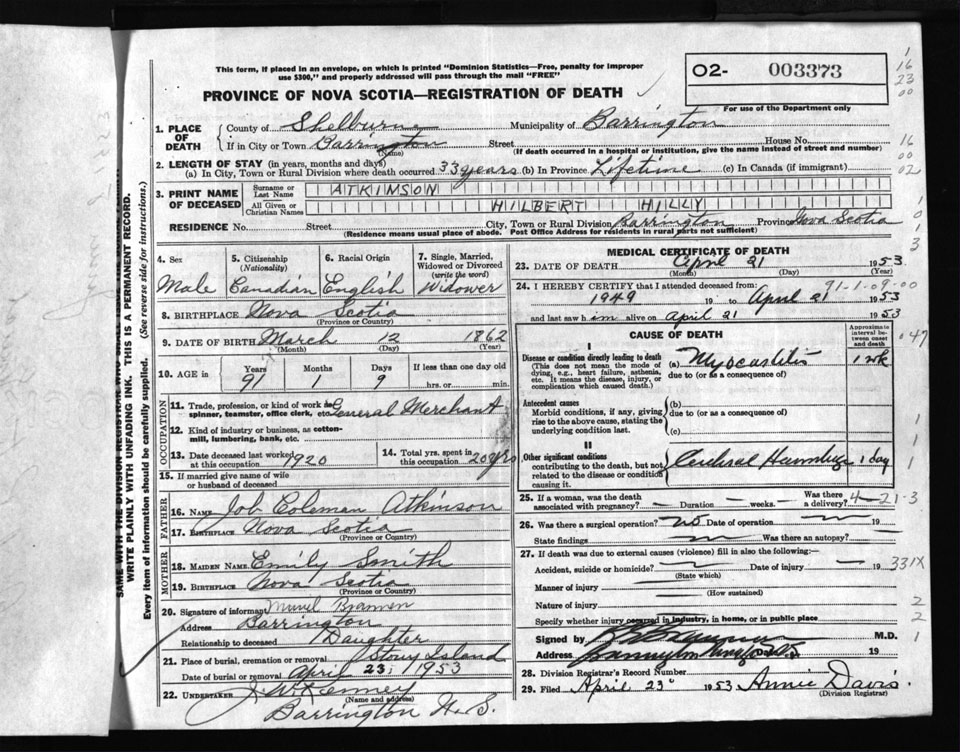 This form, if placed in an envelope, on which is printed "Dominion Statistics—Free, penalty for improper
use $300," and properly addressed will pass through the mail "FREE"
PROVINCE OF NOVA SCOTIA—REGISTRATION OF DEATH
O2- 003373
For use of the Department only
1
16
23
00
1. PLACE OF DEATH
County of Shelburne Municipality of Barrington
If in City or Town Barrington Street House No.
(Name) (If death occurred in a hospital or institution, give the name instead of street and number)
16
00
02
2. LENGTH OF STAY (in years, months and days)
(a) In City, Town or Rural Division where death occurred 33 years (b) In Province Lifetime (c) In Canada (if immigrant)
3. PRINT NAME OF DECEASED
Surname or Last Name ATKINSON
All Given or Christian Names HILBERT HILLY
RESIDENCE No. Street City, Town or Rural Division Barrington Province Nova Scotia
(Residence means usual place of abode. Post Office Address for residents in rural parts not sufficient)
1
0
1
3
SAME WITH THE DIVISION REGISTRAR WHO
WRITE PLAINLY WITH UNFADING INK. THIS IS A PERMANENT RECORD.
Every item of information should be carefully supplied. (See reverse side for instructions.)
4. Sex
Male
5. Citizenship
(Nationality)
Canadian
6. Racial Origin
English
7. Single, Married,
Widowed or Divorced
(write the word)
Widower
8. BIRTHPLACE Nova Scotia
(Province or Country)
9. DATE OF BIRTH March 12 1862
(Month) (Day) (Year)
10. AGE in
Years Months Days If less than one day old
91 1 9 hrs. or min.
OCCUPATION
11. Trade, profession, or kind of work as
spinner, teamster, office clerk, etc. General Merchant
12. Kind of industry or business, as cotton-
mill, lumbering, bank, etc.
13. Date deceased last worked
at this occupation 1920
14. Total yrs. spent in
this occupation 20 yrs
15. If married give name of wife
or husband of deceased
FATHER
16. NAME Job Coleman Atkinson
17. BIRTHPLACE Nova Scotia
(Province or Country)
MOTHER
18. MAIDEN NAME Emily Smith
19. BIRTHPLACE Nova Scotia
(Province or Country)
20. Signature of informant Muriel Brannen
Address Barrington
Relationship to deceased Daughter
21. Place of burial, cremation or removal Stony Island
Date of burial or removal April 23 1953
22. UNDERTAKER J. W. Kenney
(Name and address)
Barrington N. S.
MEDICAL CERTIFICATE OF DEATH
23. DATE OF DEATH April 21 1953
(Month) (Day) (Year)
24. I HEREBY CERTIFY that I attended deceased from: 91-1-09-00
1949 19 to April 21 1953
and last saw him alive on April 21 1953
CAUSE OF DEATH
Approximate
interval between onset
and death
047
I
Disease or condition directly leading to death
(This does not mean the mode of
dying, e.g., heart failure, asthenia,
etc. It means the disease, injury, or
complication which caused death.)
(a) Myocarditis 1 wk
due to (or as a consequence of)
Antecedent causes
Morbid conditions, if any, giving
rise to the above cause, stating the
underlying condition last.
(b)
due to (or as a consequence of)
(c)
II
Other significant conditions
contributing to the death, but not
related to the disease or condition
causing it.
Cerebral Hemorrhage 1 day
25. If a woman, was the death
associated with pregnancy? Duration weeks.
Was there
a delivery?
4-21-3
26. Was there a surgical operation? no Date of operation 19
State findings Was there an autopsy?
27. If death was due to external causes (violence) fill in also the following:—
Accident, suicide or homicide? Date of injury 19
(State which)
331X
Manner of injury
(How sustained)
Nature of injury
2
Specify whether injury occurred in industry, in home, or in public place
2
Signed by M.D.
1
Address 19
28. Division Registrar's Record Number
29. Filed April 23 1953 Annie Davis
(Division Registrar)